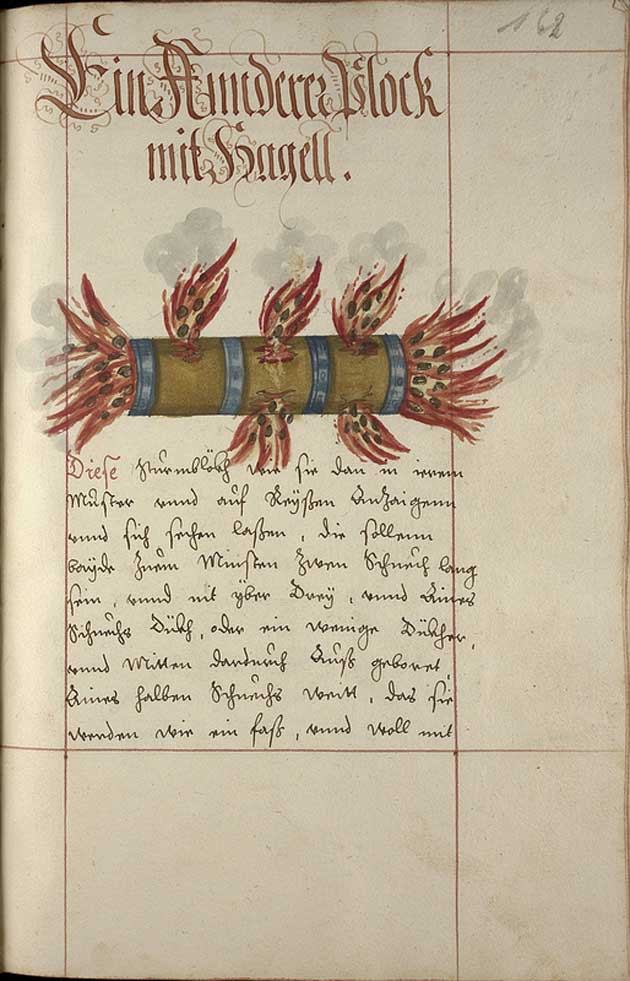 162
Ein Runderer Plock
mit Hagell.
Diese Sturmblöckh wie sie dan in irem
Muster vnnd auf Reyßen Anzaigenn
vnnd sich sechen laßen, die sollenn
bayde Zuem Minsten Zwen Schuech lang
sein, vnnd nit yber Drey, vnnd Aines
Schuechs Dickh, oder ein wenige Dickher,
vnnd Mitten dardurch Auß geboret
Aines halben Schuechs weitt, das sie
werden wie ein faß, vnnd woll mit